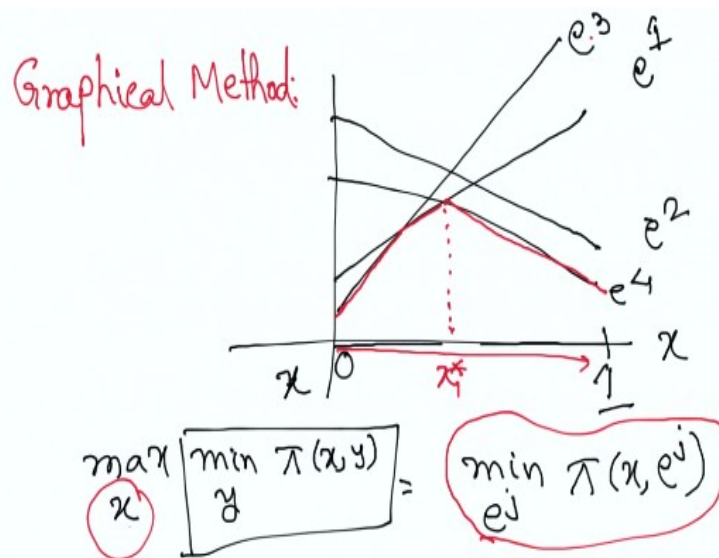 Graphical Method:
e³
e¹
e²
e⁴
x 0 x₁* 1 x
max x min y π(x,y) = min eʲ π(x,eʲ)